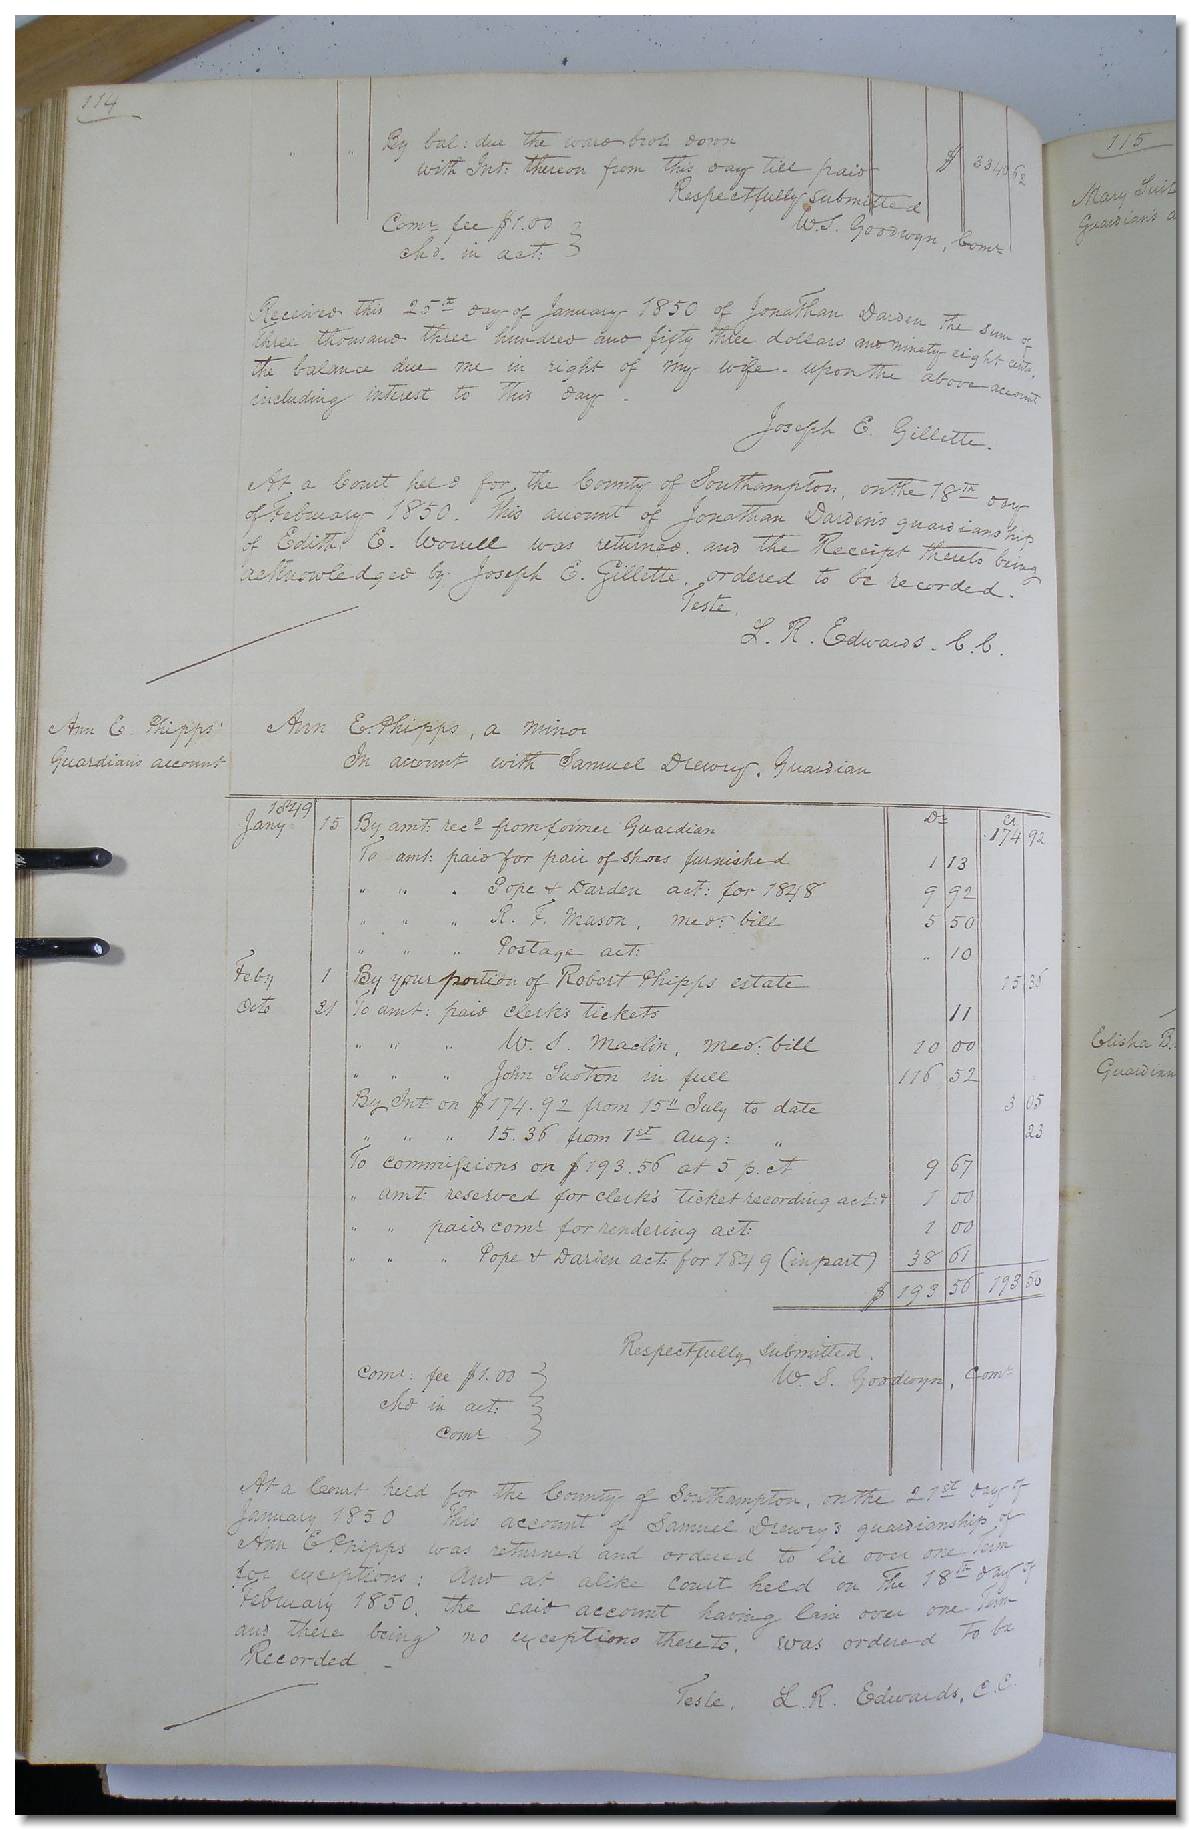 114
By bal: due the ward brot: down $ 3340 62
with Int: thereon from this day till paid
Respectfully submitted
W. S. Goodwyn, Comr
Comr fee $1.00
chd. in act:
Received this 25th day of January 1850 of Jonathan Darden the sum of
three thousand three hundred and fifty three dollars and ninety eight cents,
the balance due me in right of my wife upon the above account
including interest to this day.
Joseph E. Gillette.
At a Court held for the County of Southampton, on the 18th day
of February 1850. This account of Jonathan Darden's guardianship
of Edith E. Worrell was returned, and the Receipt thereto being
acknowledged by Joseph E. Gillette, ordered to be recorded.
Teste,
L. R. Edwards. C.C.
Ann E. Phipps'
Guardian's account
Ann E. Phipps, a minor
In account with Samuel Drewry, Guardian
1849 Dr Cr
Jany 15 By amt: recd from former Guardian 174 92
To amt: paid for pair of shoes furnished 1 13
" " " Pope & Darden act: for 1848 9 92
" " " R. F. Mason, med: bill 5 50
" " " Postage act: " 10
Feby 1 By your portion of Robert Phipps estate 15 36
Octo 21 To amt: paid clerks tickets 11
" " " W. S. Maclin, med: bill 10 00
" " " John Sutton in full 116 52
By Int on $174.92 from 15th July to date 3 05
" " " 15.36 from 1st Aug: " 23
To commissions on $193.56 at 5 p. ct 9 67
" amt: reserved for clerk's ticket recording act: & 1 00
" " paid comr for rendering act: 1 00
" " " Pope & Darden act: for 1849 (in part) 38 61
$ 193 56 193 56
Respectfully submitted.
W. S. Goodwyn, Comr
comr: fee $1.00
chd in act:
comr
At a Court held for the County of Southampton, on the 21st day of
January 1850 This account of Samuel Drewry's guardianship of
Ann E Phipps was returned and ordered to lie over one Term
for exceptions; And at a like court held on the 18th day of
February 1850, the said account having lain over one Term
and there being no exceptions thereto, was ordered to be
Recorded
Teste. L. R. Edwards, C.C.
115
Mary
Guardian's
Elisha B.
Guardian